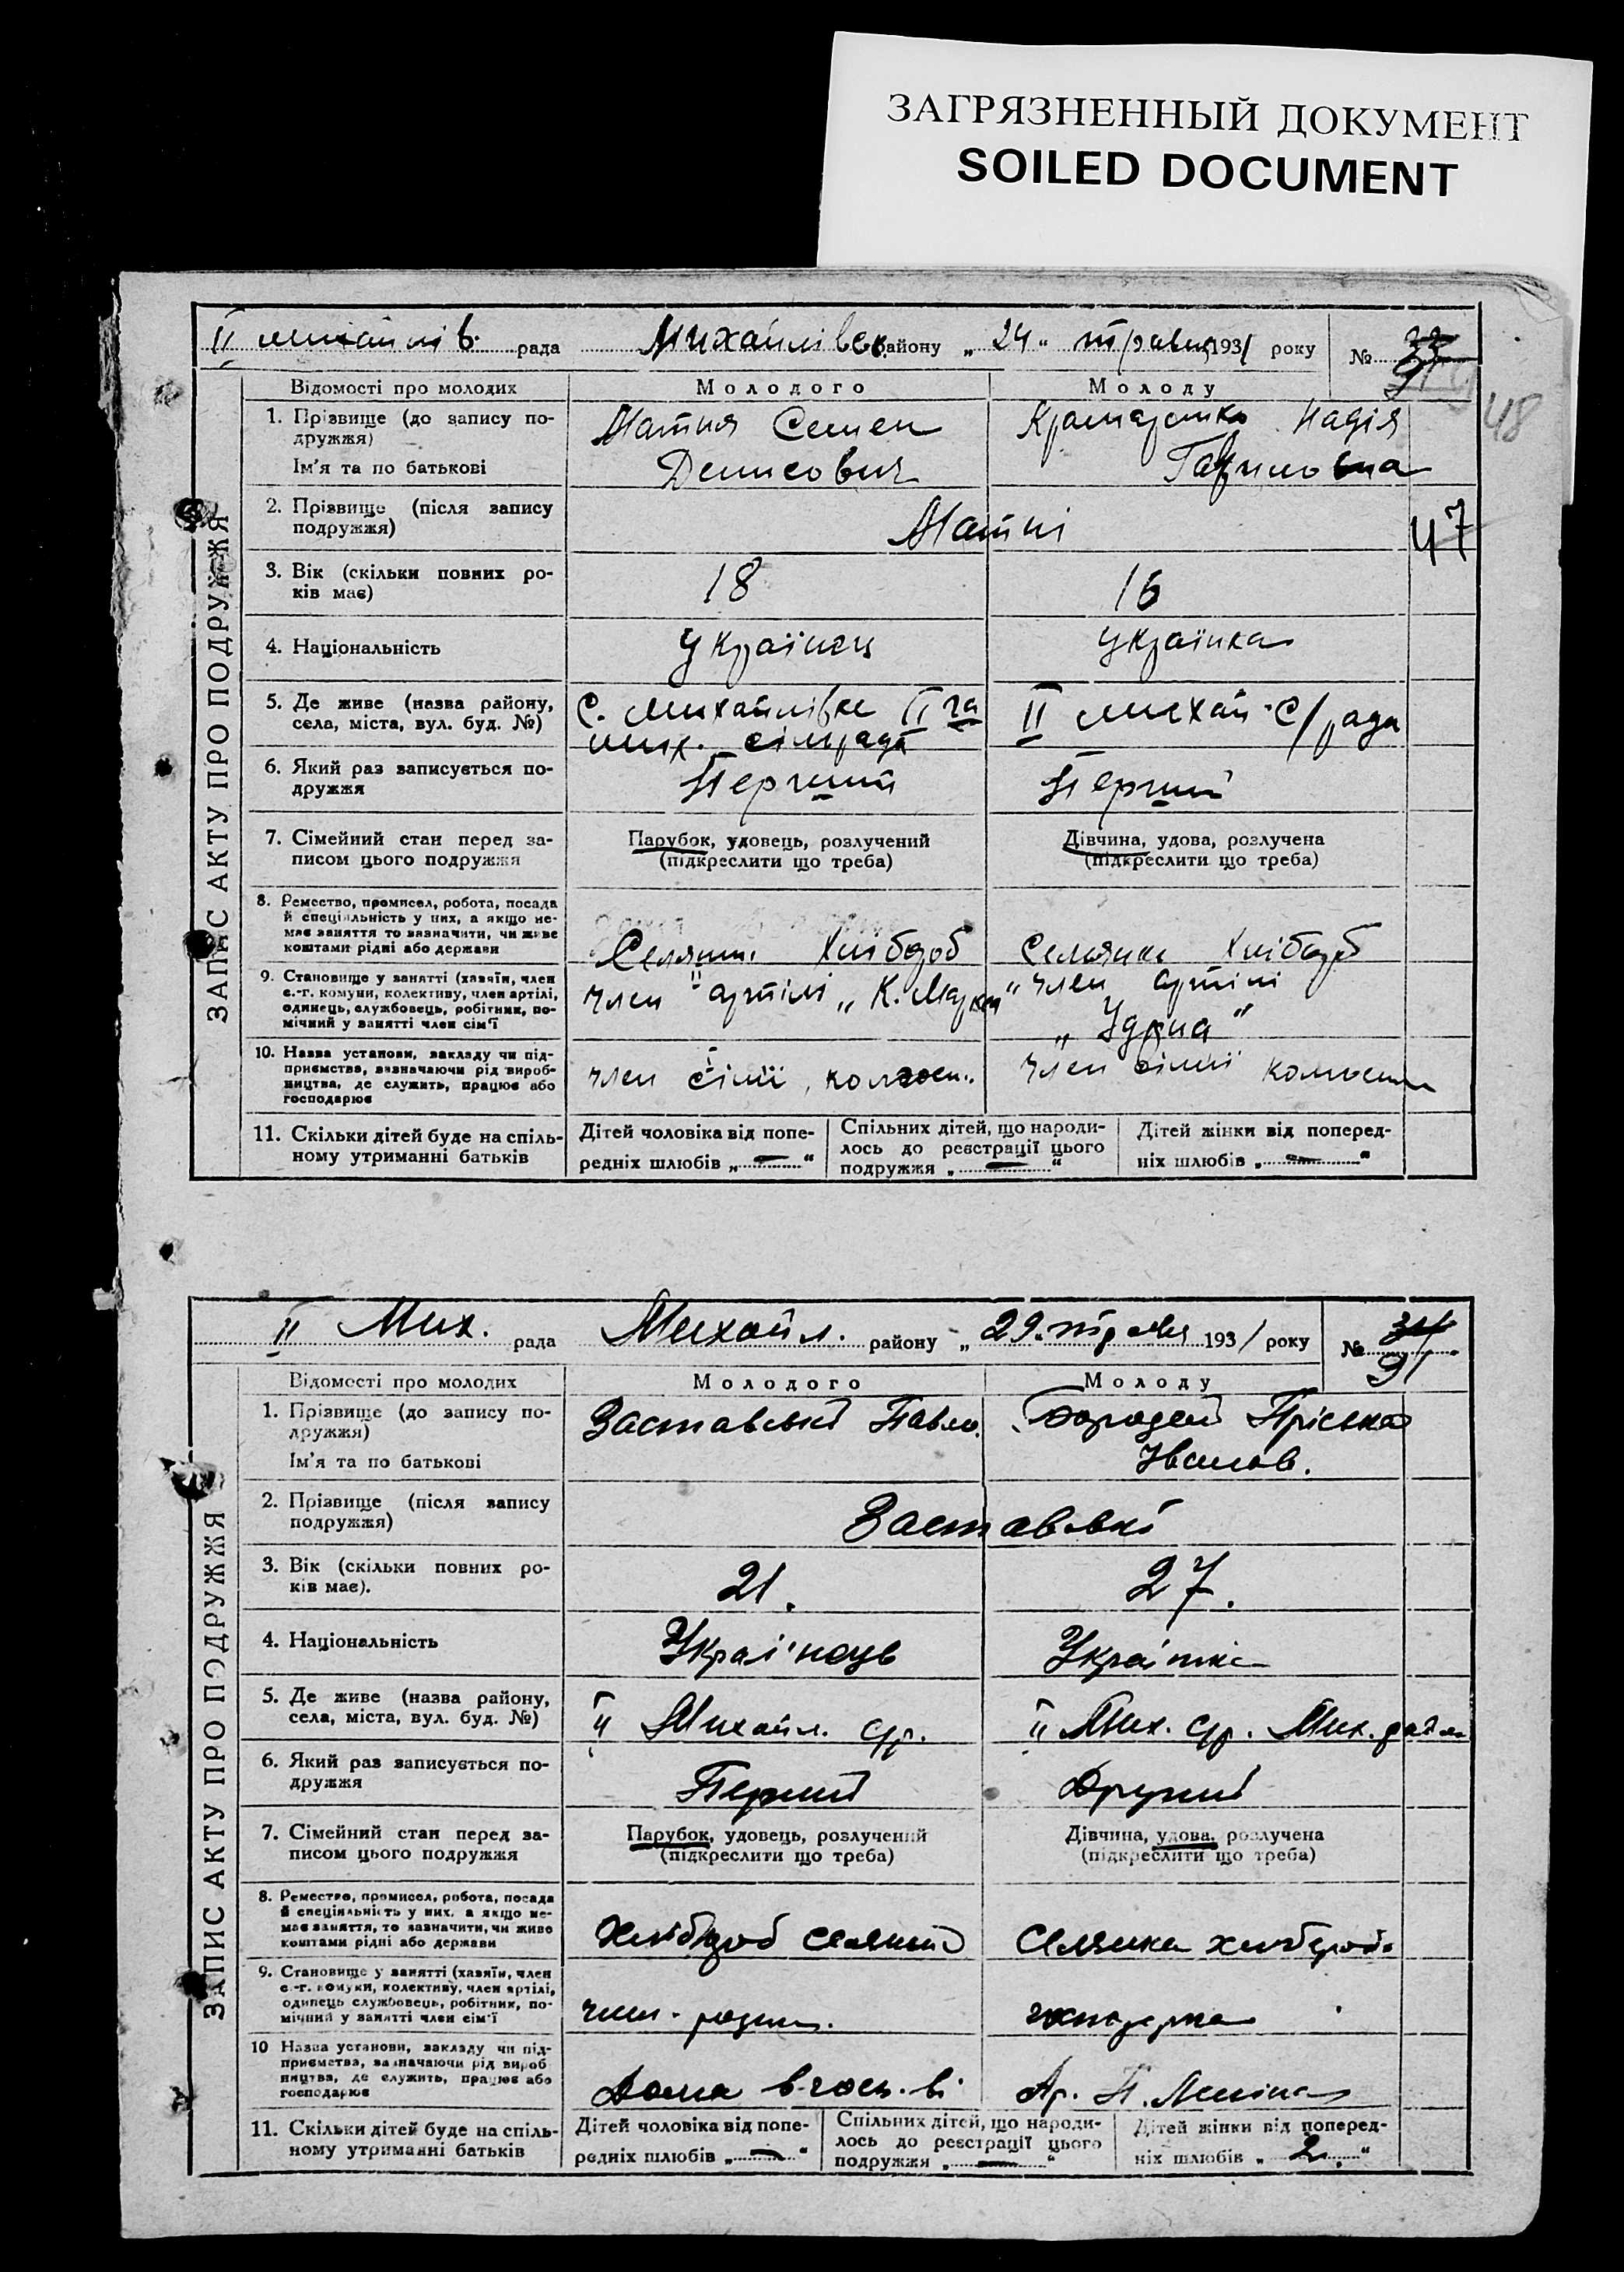 ЗАГРЯЗНЕННЫЙ ДОКУМЕНТ
SOILED DOCUMENT
II михайлів. рада Михайлівськ району „ 24 “ травня 1931 року №
48
ЗАПИС АКТУ ПРО ПОДРУЖЖЯ
Відомості про молодих Молодого Молоду
1. Прізвище (до запису подружжя) Матня Семен Надія
Ім'я та по батькові Денисович Гавриловна
2. Прізвище (після запису подружжя) Матні
47
3. Вік (скільки повних років має) 18 16
4. Національність Українець Українка
5. Де живе (назва району, села, міста, вул. буд. №) С. Михайлівка II га II михай. с/рада
мих. сільрада
6. Який раз записується подружжя Перший Перший
7. Сімейний стан перед записом цього подружжя Парубок, удовець, розлучений Дівчина, удова, розлучена
(підкреслити що треба) (підкреслити що треба)
8. Ремество, промисел, робота, посада й спеціяльність у них, а якщо немає заняття то зазначити, чи живе коштами рідні або держави Селянин Хлібороб Селянка Хлібороб
9. Становище у занятті (хазяїн, член с.-г. комуни, колективу, член артілі, одинець, службовець, робітник, помічний у занятті член сім'ї член артілі „ К. Маркса “ член артілі
„ Ударна “
10. Назва установи, закладу чи підприємства, зазначаючи рід виробництва, де служить, працює або господарює член сімї, колгосп. член сімї колгосп
11. Скільки дітей буде на спільному утриманні батьків Дітей чоловіка від попередніх шлюбів „ — “ Спільних дітей, що народилось до реєстрації цього подружжя „ — “ Дітей жінки від попередніх шлюбів „ — “
II Мих. рада Михайл. району „ 29 “ травня 1931 року № 31
ЗАПИС АКТУ ПРО ПОДРУЖЖЯ
Відомості про молодих Молодого Молоду
1. Прізвище (до запису подружжя) Заставський Павло Пріська
Ім'я та по батькові Иванов.
2. Прізвище (після запису подружжя) Заставські
3. Вік (скільки повних років має). 21. 27.
4. Національність Українець Українка
5. Де живе (назва району, села, міста, вул. буд. №) II Михайл. с/р. II Мих. с/р. Мих.
6. Який раз записується подружжя Перший Другий
7. Сімейний стан перед записом цього подружжя Парубок, удовець, розлучений Дівчина, удова, розлучена
(підкреслити що треба) (підкреслити що треба)
8. Ремество, промисел, робота, посада й спеціяльність у них, а якщо немає заняття, то зазначити, чи живе коштами рідні або держави Хлібороб селянин Селянка хлібороб.
9. Становище у занятті (хазяїн, член с.-г. комуни, колективу, член артілі, одинець службовець, робітник, помічний у занятті член сім'ї член родин.
10 Назва установи, закладу чи підприємства, зазначаючи рід виробництва, де служить, працює або господарює Дома в госп.-ві Ар. Леніна
11. Скільки дітей буде на спільному утриманні батьків Дітей чоловіка від попередніх шлюбів „ — “ Спільних дітей, що народилось до реєстрації цього подружжя „ — “ Дітей жінки від попередніх шлюбів „ 2. “